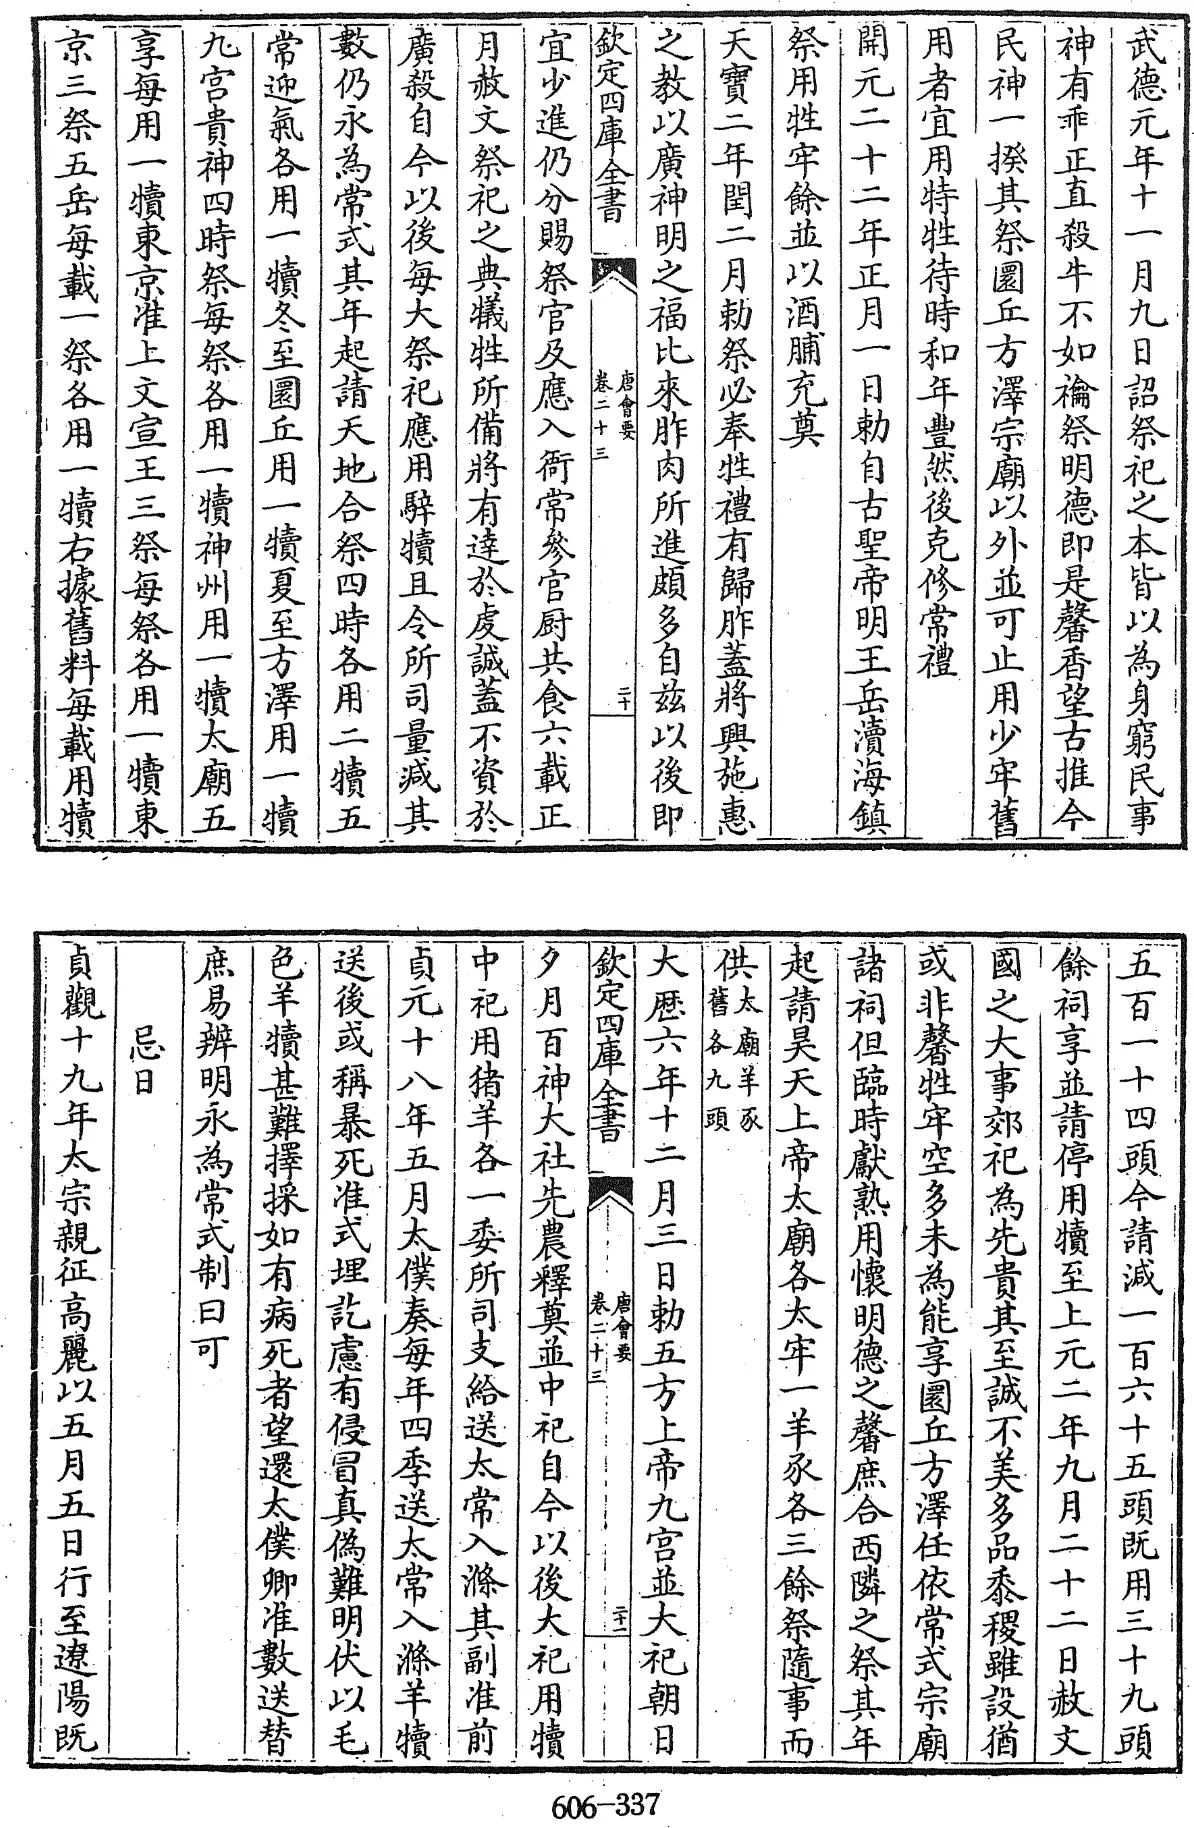 武德元年十一月九日詔祭祀之本皆以為身窮民事
神有乖正直殺牛不如禴祭明德即是馨香望古推今
民神一揆其祭圜丘方澤宗廟以外並可止用少牢舊
用者宜用特牲待時和年豐然後克修常禮
開元二十二年正月一日勅自古聖帝明王岳瀆海鎮
祭用牲牢餘並以酒脯充奠
天寶二年閏二月勅祭必奉牲禮有歸胙蓋將興施惠
之教以廣神明之福比來胙肉所進頗多自兹以後即
欽定四庫全書
唐會要
卷二十三
二十
宜少進仍分賜祭官及應入衙常參官厨共食六載正
月赦文祭祀之典犧牲所備將有達於虔誠蓋不資於
廣殺自今以後每大祭祀應用騂犢且令所司量減其
數仍永為常式其年起請天地合祭四時各用二犢五
常迎氣各用一犢冬至圜丘用一犢夏至方澤用一犢
九宮貴神四時祭每祭各用一犢神州用一犢太廟五
享每用一犢東京准上文宣王三祭每祭各用一犢東
京三祭五岳每載一祭各用一犢右據舊料每載用犢
五百一十四頭今請減一百六十五頭既用三十九頭
餘祠享並請停用犢至上元二年九月二十二日赦文
國之大事郊祀為先貴其至誠不美多品黍稷雖設猶
或非馨牲牢空多未為能享圜丘方澤任依常式宗廟
諸祠但臨時獻熟用懷明德之馨庶合西隣之祭其年
起請昊天上帝太廟各太牢一羊豕各三餘祭隨事而
供太廟羊豕
舊各九頭
大歷六年十二月三日勅五方上帝九宮並大祀朝日
欽定四庫全書
唐會要
卷二十三
二十一
夕月百神大社先農釋奠並中祀自今以後大祀用犢
中祀用猪羊各一委所司支給送太常入滌其副准前
貞元十八年五月太僕奏每年四季送太常入滌羊犢
送後或稱暴死准式埋訖慮有侵冒真偽難明伏以毛
色羊犢甚難擇採如有病死者望還太僕卿准數送替
庶易辨明永為常式制曰可
忌日
貞觀十九年太宗親征高麗以五月五日行至遼陽既
606-337